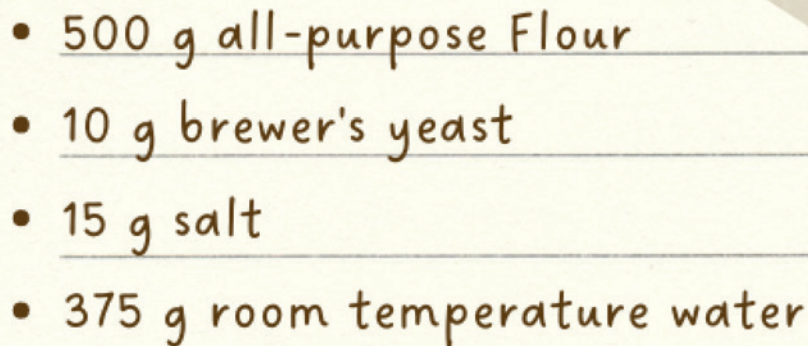 • 500 g all-purpose Flour
• 10 g brewer's yeast
• 15 g salt
• 375 g room temperature water